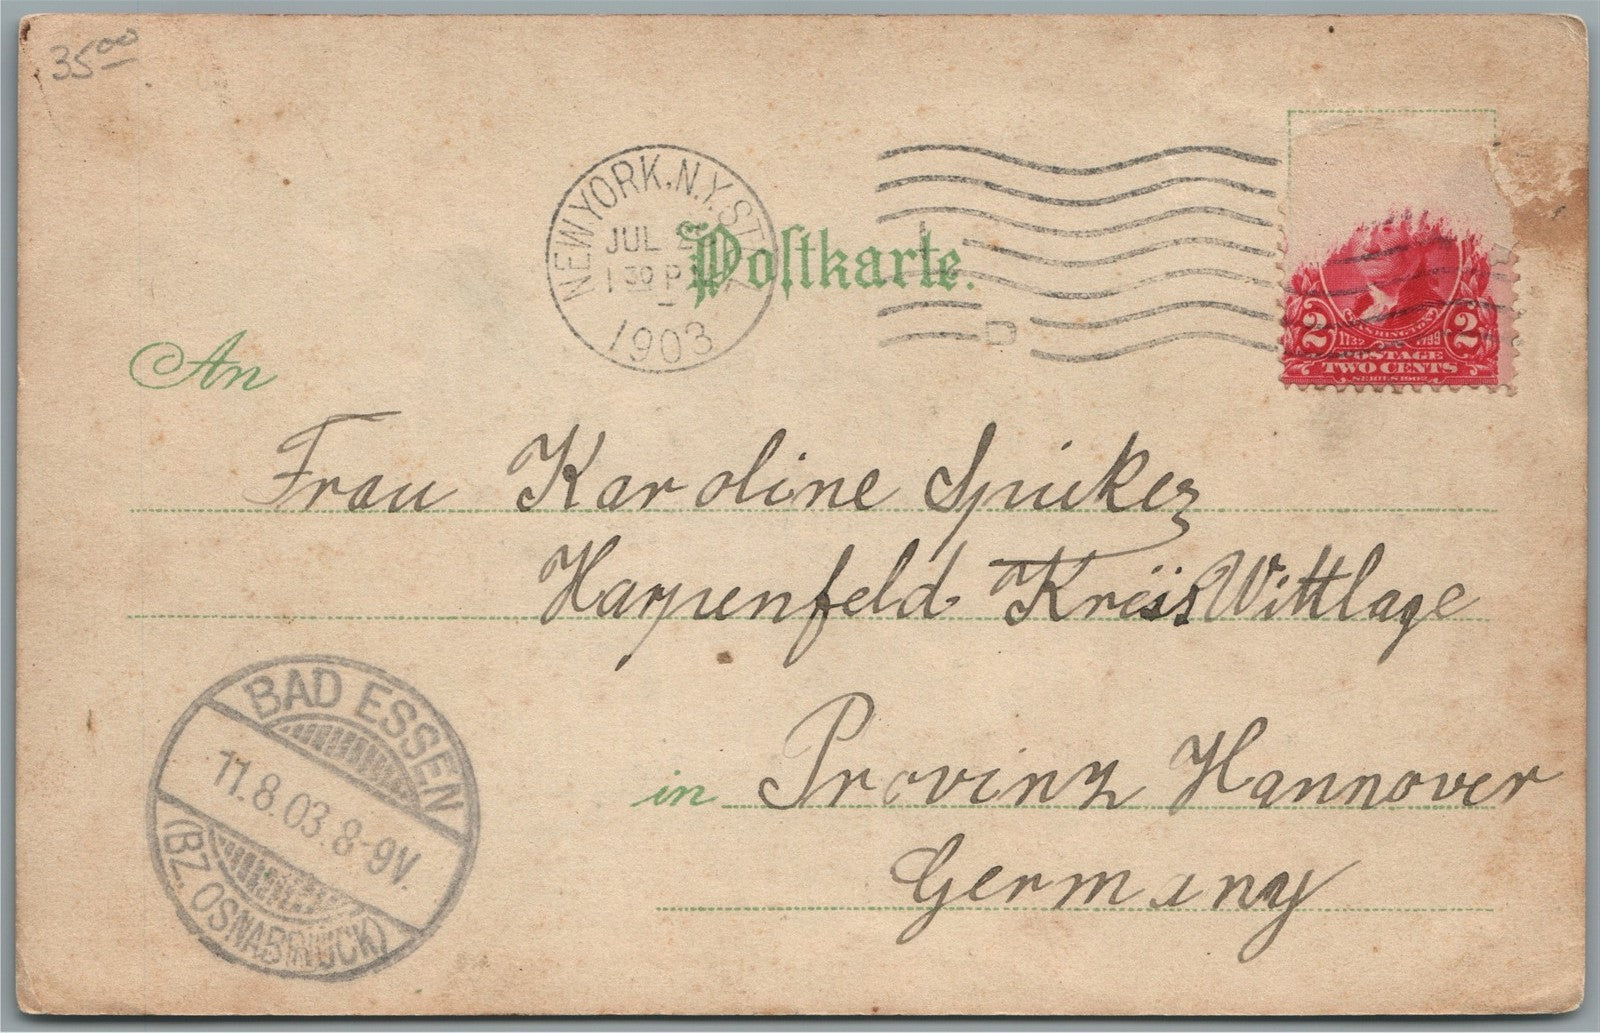 35.00
NEW YORK, N.Y. STA
JUL 2
1 30 P
1903
Postkarte.
D
2 WASHINGTON 2
1732 1799
POSTAGE
TWO CENTS
SERIES 1902
An
Frau Karoline
Harpenfeld Kreis Wittlage
BAD ESSEN
11.8.03.8-9V.
(BZ. OSNABRÜCK)
in Provinz Hannover
Germany